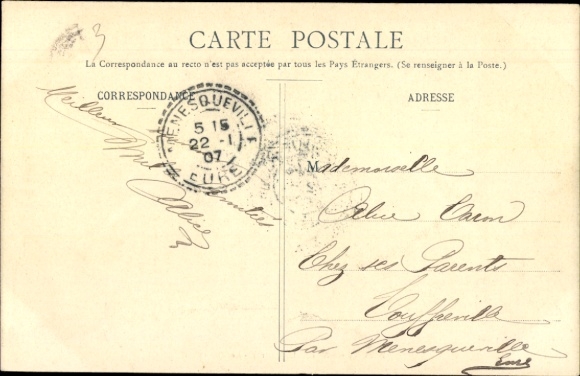 3
CARTE POSTALE
La Correspondance au recto n'est pas acceptée par tous les Pays Étrangers. (Se renseigner à la Poste.)
CORRESPONDANCE
ADRESSE
MENESQUEVILLE
5 15
22 -1
07
EURE
Meilleures
Amitiés
Alice
Mademoiselle
Alice Caron
Chez ses Parents
Touffreville
Par Menesqueville
Eure